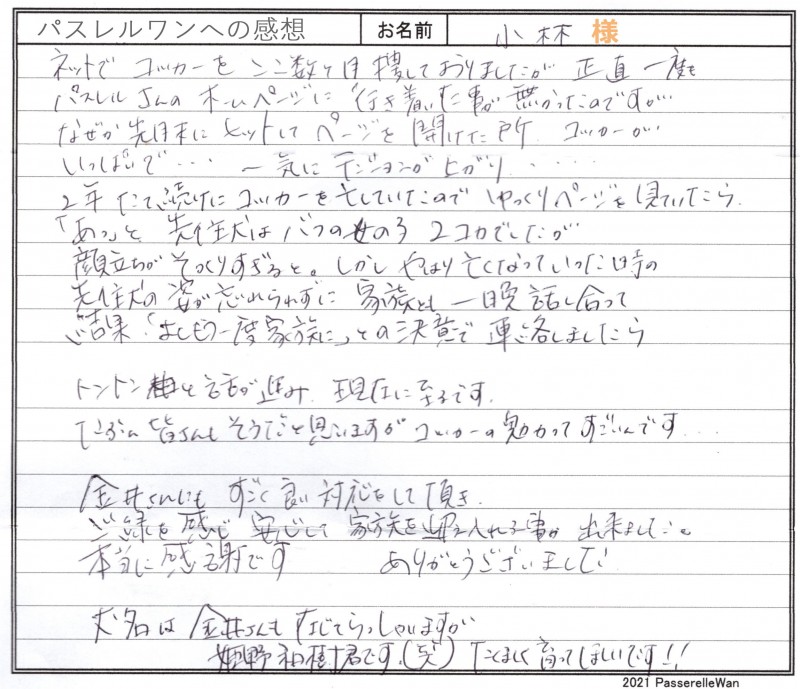 パスレルワンへの感想 お名前 小林 様
ネットで コッカーを ここ数ヶ月 捜しておりましたが 正直 一度も
パスレルさんの ホームページに 行き着いた事が 無かったのですが…
なぜか先月末に ヒットして ページを 開けた所 コッカーが…
いっぱいで… 一気に テンションが 上がり……
2年 たて続けに コッカーを 亡していたので ゆっくりページを 見ていたら、
「あっ」と 先住犬は バフの女の子 2コカでしたが
顔立ちが そっくりすぎると。しかし やはり 亡くなっていった時の
先住犬の 姿が 忘れられずに 家族とも 一晩 話し合って
結果「よしもう一度家族に」との決意で 連絡しましたら
トントン と話が 進み、現在に至るです。
たぶん 皆さんも そうだと思いますが コッカーの 魅力ってすごいんです…
金井さんにも すごく 良い 対応をして 頂き、
ご縁を 感じ 安心して 家族を 迎え入れる事が 出来ました。
本当に 感謝です ありがとうございました!
犬名は 金井さんも 存じてらっしゃいますが
姫野和樹君です。(笑) たくましく 育ってほしいです!!
2021 PasserelleWan